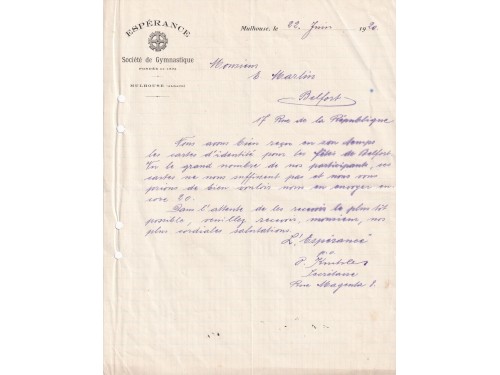 ESPÉRANCE
Société de Gymnastique
MULHOUSE (ALSACE)
Mulhouse, le 22 Juin 1920
Monsieur
E. Martin
Belfort
17 Rue de la République
Nous avons bien reçu en son temps
les cartes d'identité pour les fêtes de Belfort
Vu le grand nombre de nos participants, ces
cartes ne nous suffisent pas et nous vous
prions de bien vouloir nous en envoyer en
core 20.
Dans l'attente de les recevoir le plus tôt
possible, veuillez recevoir, monsieur, nos
plus cordiales salutations.
L'Espérance
Secrétaire
Rue Magenta